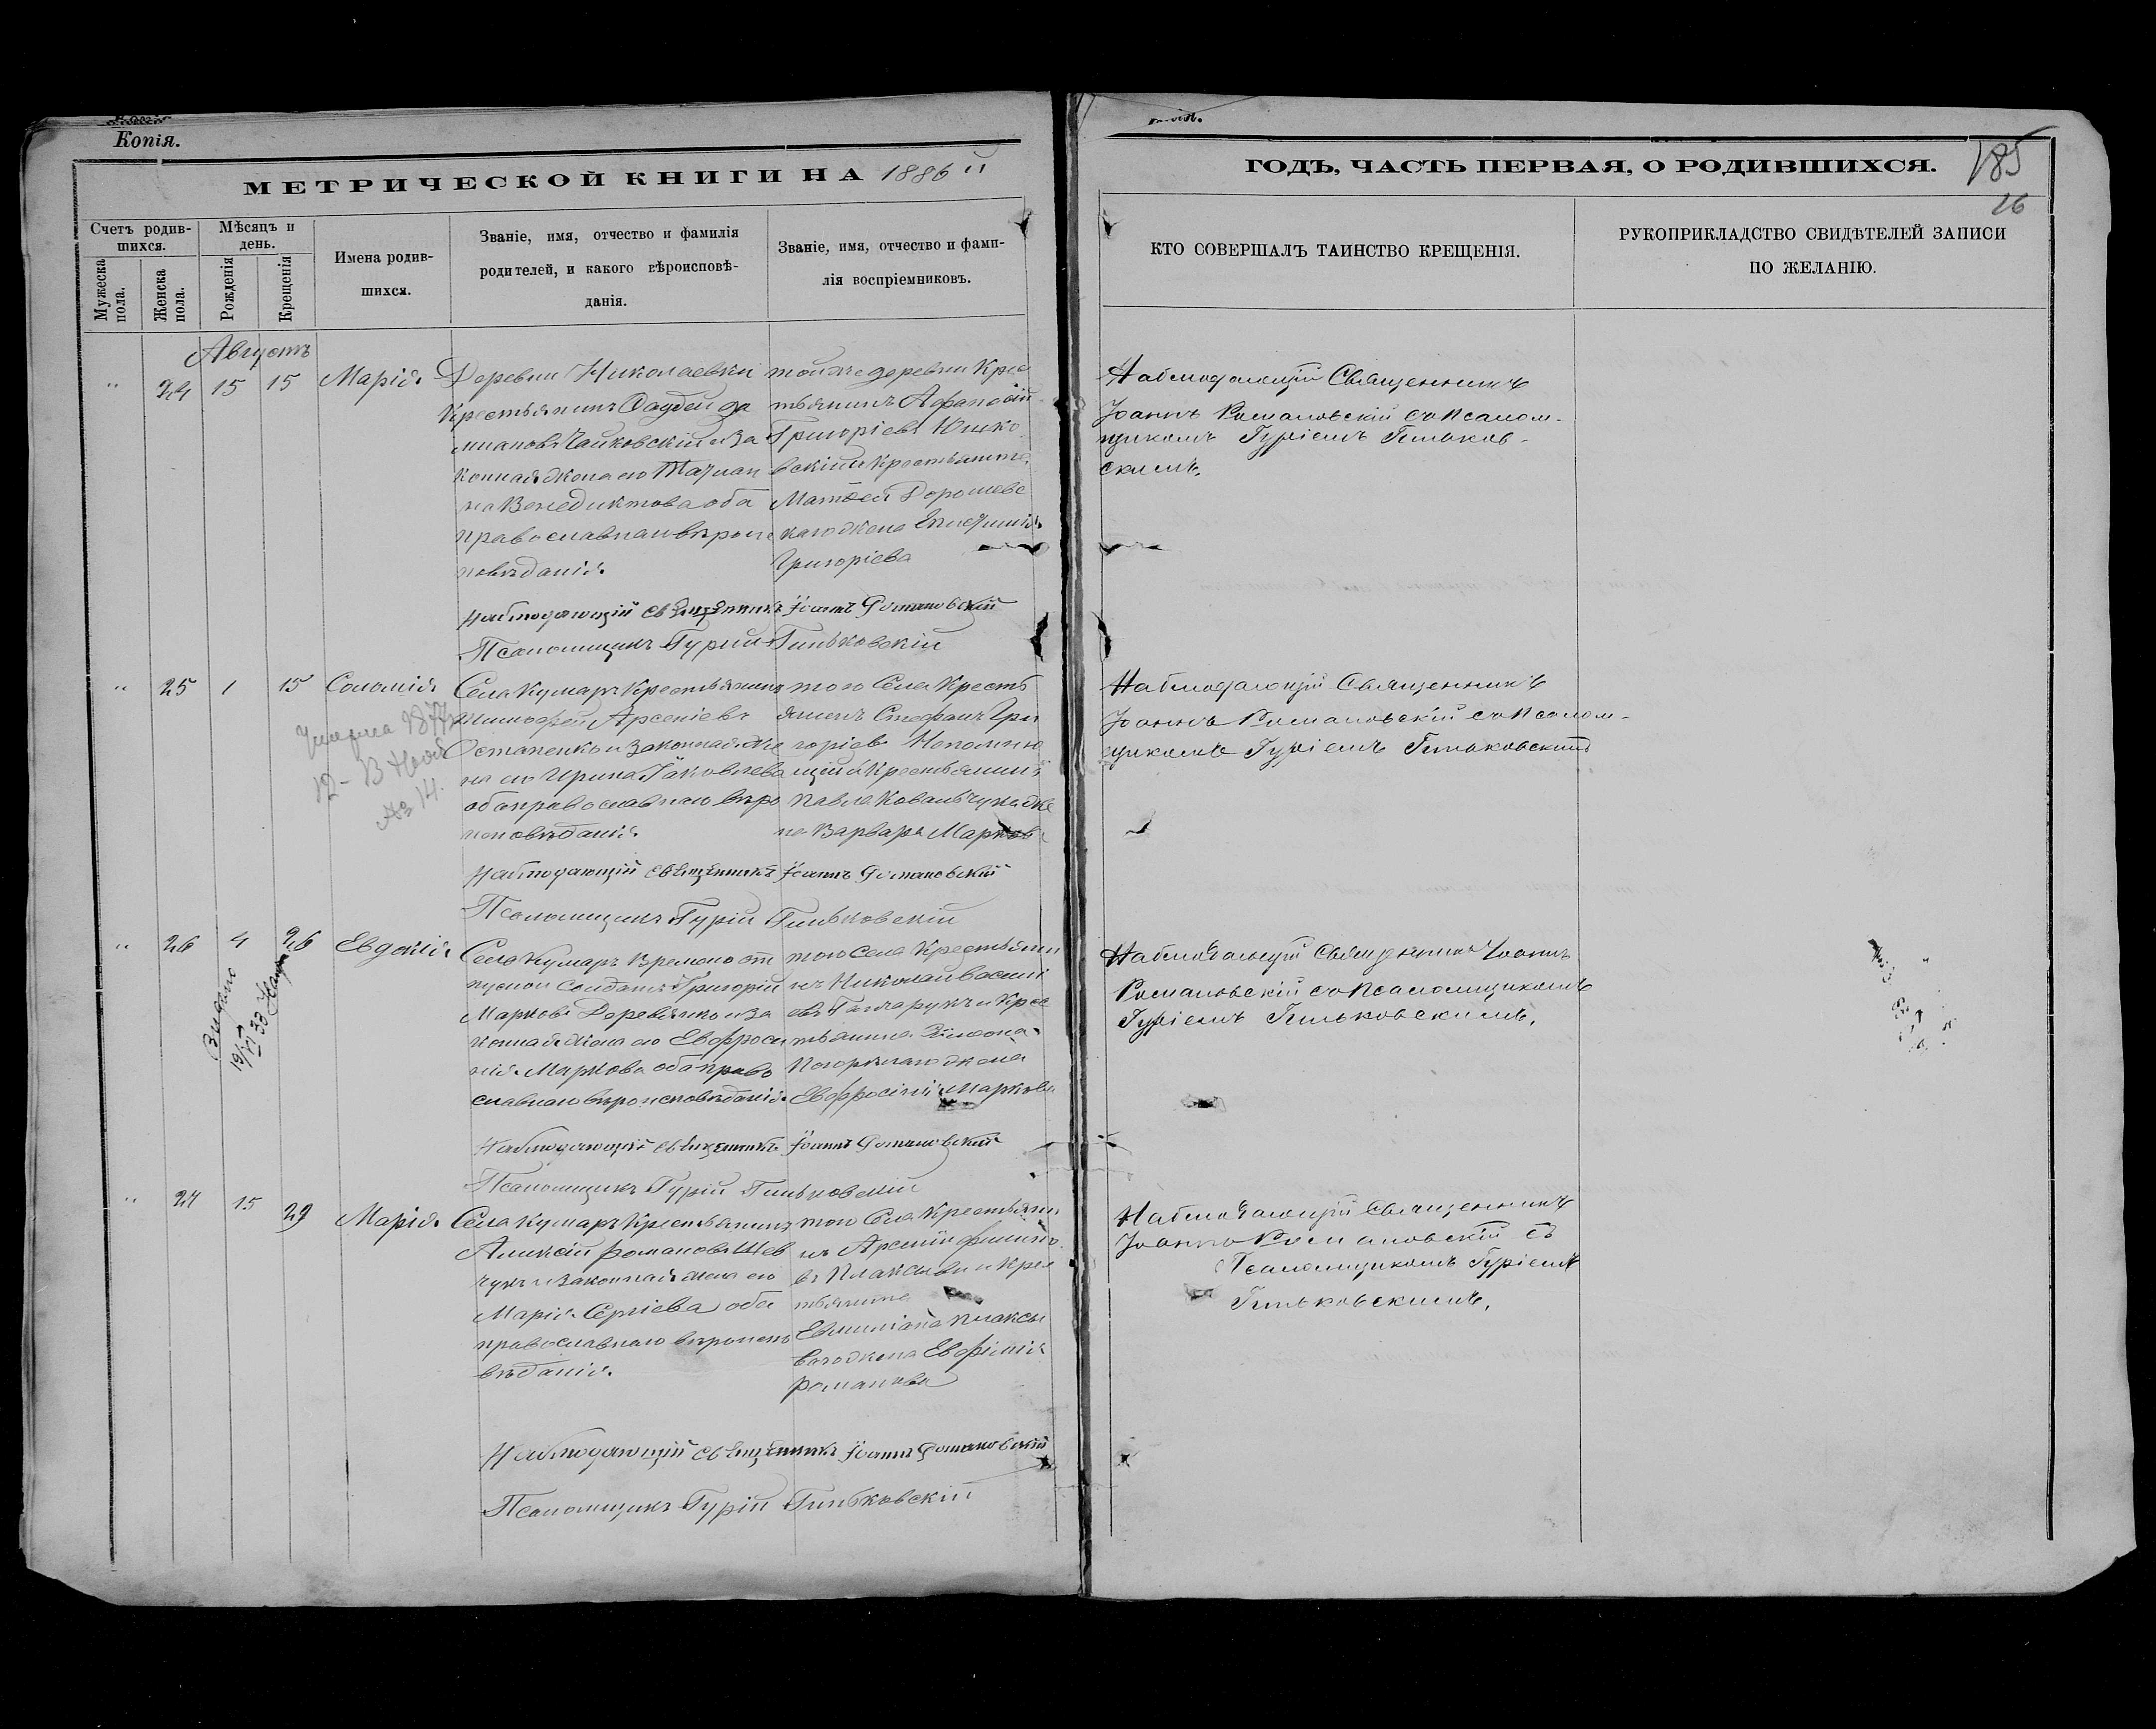 Копія.
МЕТРИЧЕСКОЙ КНИГИ НА 1886й
ГОДЪ, ЧАСТЬ ПЕРВАЯ, О РОДИВШИХСЯ.
185
26
Счетъ родив-
шихся.
Мужеска
пола.
Женска
пола.
Мѣсяцъ и
день.
Рожденія
Крещенія
Имена родив-
шихся.
Званіе, имя, отчество и фамилія
родителей, и какого вѣроисповѣ-
данія.
Званіе, имя, отчество и фами-
лія воспріемниковъ.
КТО СОВЕРШАЛЪ ТАИНСТВО КРЕЩЕНІЯ.
РУКОПРИКЛАДСТВО СВИДѢТЕЛЕЙ ЗАПИСИ
ПО ЖЕЛАНІЮ.
Августъ
" 24 15 15 Марія
Деревни Николаевки
Крестьянинъ Фаддей Да
миановъ Чайковскій и за
конная жена его Татиан
на Венедиктова оба
православнаго вѣроис
повѣданія.
той же деревни Крес
тьянинъ Афанасій
Григоріевъ Юшко
вскій и крестьянина
Матѳея Дорошевс
каго жена Евфимія
Григоріева
Наблюдающій Священникъ
Іоаннъ Романовскій съ Псалом-
щикомъ Гуріемъ Гиньков-
скимъ.
Наблюдающій Священникъ Іоаннъ Романовскій
Псаломщикъ Гурій Гиньковскій
" 25 1 15 Соломія
Села Кумаръ Крестьянинъ
Тимофей Арсеніевъ
Остапенко и законная же
на его Ирина Іаковлева
оба православнаго вѣро
исповѣданія.
того Села Кресть
янинъ Стефанъ Гри
горіевъ Непомню
щій и Крестьянина
Павла Ковальчука же
на Варвара Маркова
Наблюдающій Священникъ
Іоаннъ Романовскій съ Псалом-
щикомъ Гуріемъ Гиньковскимъ
Наблюдающій Священникъ Іоаннъ Романовскій
Псаломщикъ Гурій Гиньковскій
" 26 4 26 Евдокія
Видано
Села Кумаръ Временно от
пускной Солдатъ Григорій
Марковъ Деревянко и за
конная жена его Евфроси
нія Маркова оба право
славнаго вѣроисповѣданія.
того Села Крестьяни
нъ Николай Василі
евъ Ганчарукъ и Крес
тьянина Симеона
Погорѣлаго жена
Евфросинія Маркова
Наблюдающій Священникъ Іоаннъ
Романовскій съ Псаломщикомъ
Гуріемъ Гиньковскимъ.
Наблюдающій Священникъ Іоаннъ Романовскій
Псаломщикъ Гурій Гиньковскій
" 27 15 29 Марія
Села Кумаръ Крестьянинъ
Аликсѣй Романовъ Шев
чукъ и законная жена его
Марія Сергіева оба
православнаго вѣроиспо
вѣданія.
того Села Крестьяни
нъ Арсеній Филипо
въ Плаксывы и Крес
тьянина
Евмиліана Плаксы
ваго жена Евфимія
Романова
Наблюдающій Священникъ
Іоаннъ Романовскій съ
Псаломщикомъ Гуріемъ
Гиньковскимъ.
Наблюдающій Священникъ Іоаннъ Романовскій
Псаломщикъ Гурій Гиньковскій